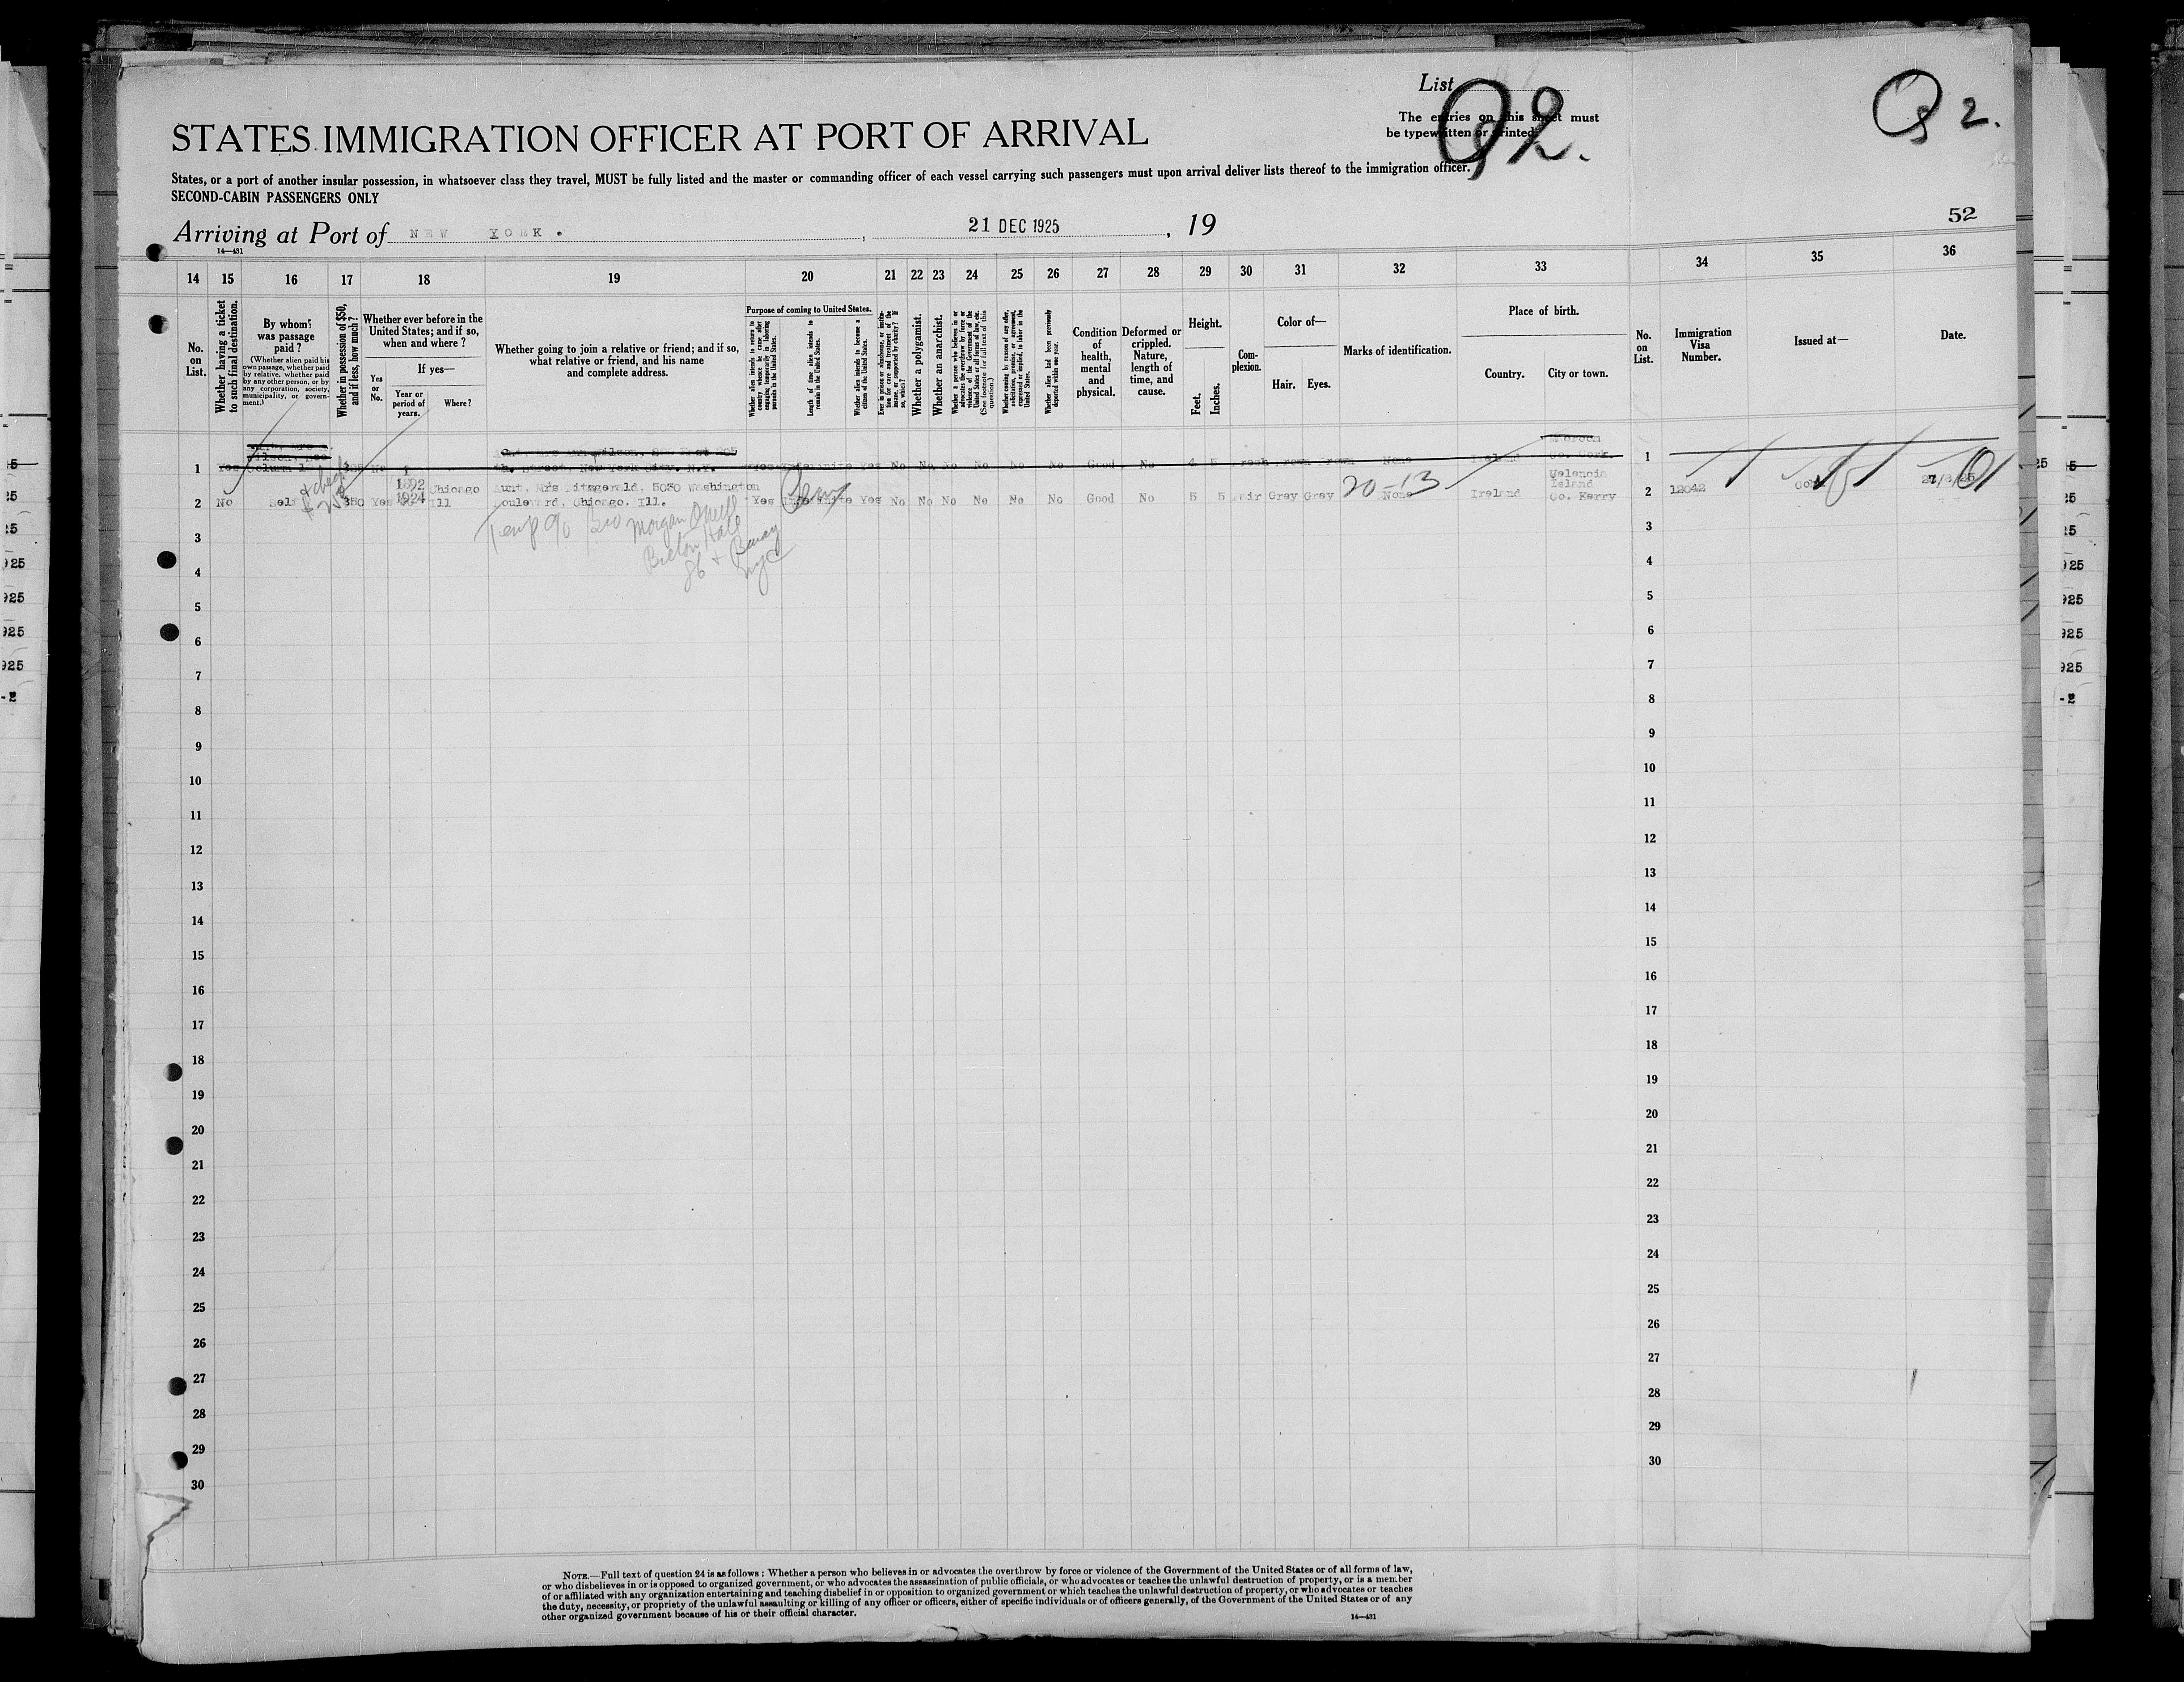 List
Q 2.
Q 2.
The entries on this sheet must
be typewritten or printed.
STATES IMMIGRATION OFFICER AT PORT OF ARRIVAL
States, or a port of another insular possession, in whatsoever class they travel, MUST be fully listed and the master or commanding officer of each vessel carrying such passengers must upon arrival deliver lists thereof to the immigration officer.
SECOND-CABIN PASSENGERS ONLY
52
Arriving at Port of NEW YORK. , 21 DEC 1925 , 19
14—431
14 15 16 17 18 19 20 21 22 23 24 25 26 27 28 29 30 31 32 33 34 35 36
No. on List.
Whether having a ticket to such final destination.
By whom was passage paid?
(Whether alien paid his own passage, whether paid by relative, whether paid by any other person, or by any corporation, society, municipality, or government.)
Whether in possession of $50, and if less, how much?
Whether ever before in the United States; and if so, when and where?
Yes or No.
If yes—
Year or period of years.
Where?
Whether going to join a relative or friend; and if so, what relative or friend, and his name and complete address.
Purpose of coming to United States.
Whether alien intends to return to country whence he came after engaging temporarily in laboring pursuits in the United States.
Length of time alien intends to remain in the United States.
Whether alien intends to become a citizen of the United States.
Ever in prison or almshouse, or institution for care and treatment of the insane, or supported by charity? If so, which?
Whether a polygamist.
Whether an anarchist.
Whether a person who believes in or advocates the overthrow by force or violence of the Government of the United States or all forms of law, etc. (See footnote for full text of this question.)
Whether coming by reason of any offer, solicitation, promise, or agreement, expressed or implied, to labor in the United States.
Whether alien had been previously deported within one year.
Condition of health, mental and physical.
Deformed or crippled. Nature, length of time, and cause.
Height.
Feet. Inches.
Complexion.
Color of—
Hair. Eyes.
Marks of identification.
Place of birth.
Country. City or town.
No. on List.
Immigration Visa Number.
Issued at—
Date.
1 Yes No No No No No No No Good No None Ireland Co. Cork. 1
Street, New York City. N.Y.
1892 Chicago Aunt, Mrs Fitzgerald, 5030 Washington 20-13 Valencia Island
2 No Self 350 Yes 1924 Ill Boulevard, Chicago. Ill. Yes Yes No No No No No No Good No 5 5 Fair Grey Grey None Ireland Co. Kerry 2 12042
Temp % Morgan
86 + NYC
3 3
4 4
5 5
6 6
7 7
8 8
9 9
10 10
11 11
12 12
13 13
14 14
15 15
16 16
17 17
18 18
19 19
20 20
21 21
22 22
23 23
24 24
25 25
26 26
27 27
28 28
29 29
30 30
NOTE.—Full text of question 24 is as follows: Whether a person who believes in or advocates the overthrow by force or violence of the Government of the United States or of all forms of law,
or who disbelieves in or is opposed to organized government, or who advocates the assassination of public officials, or who advocates or teaches the unlawful destruction of property, or is a member
of or affiliated with any organization entertaining and teaching disbelief in or opposition to organized government or which teaches the unlawful destruction of property, or who advocates or teaches
the duty, necessity, or propriety of the unlawful assaulting or killing of any officer or officers, either of specific individuals or of officers generally, of the Government of the United States or of any
other organized government because of his or their official character.
14—431